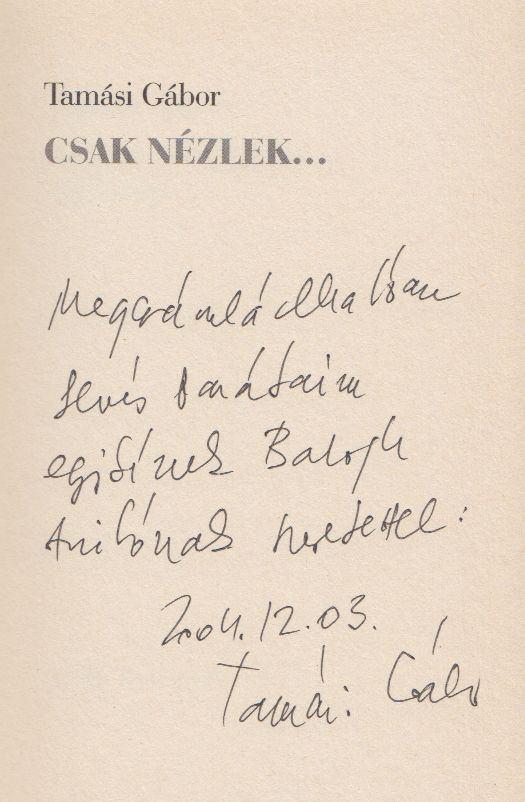 Tamási Gábor
CSAK NÉZLEK...
Megszámlálhatóan
kevés barátaim
egyikének Balogh
Anikónak szeretettel:
2004.12.03.
Tamási Gábor